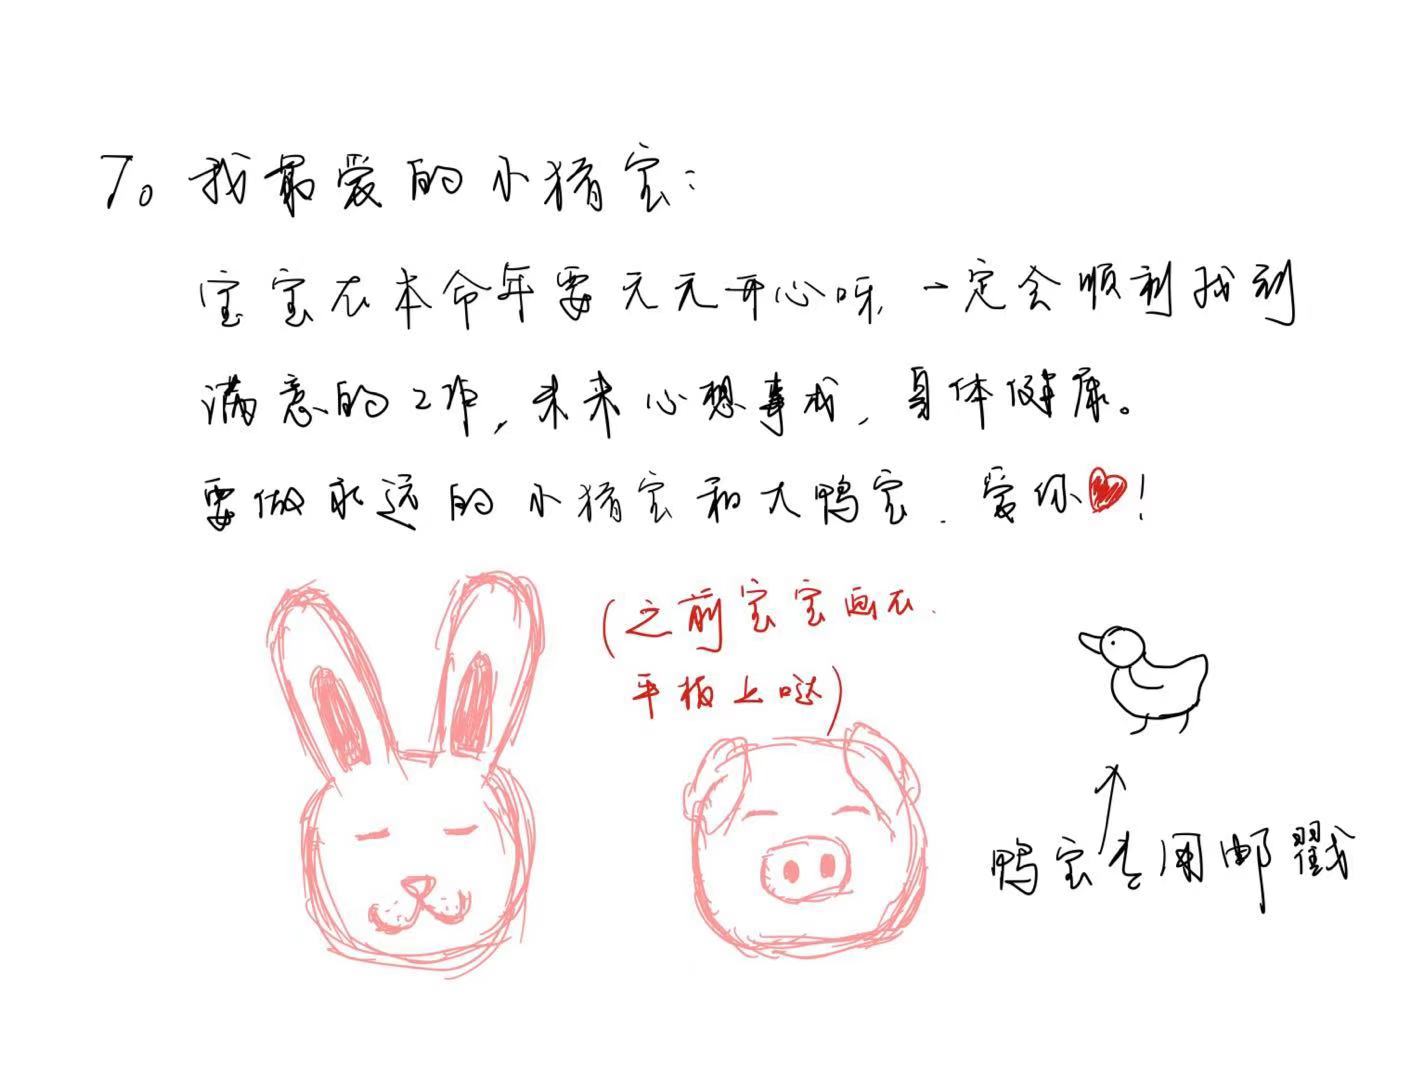 7。我最爱的小猪宝：
宝宝在本命年要天天开心呀，一定会顺利找到
满意的工作，未来心想事成，身体健康。
要做永远的小猪宝和大鸭宝，爱你❤！
（之前宝宝画在
平板上哒）
鸭宝专用邮戳